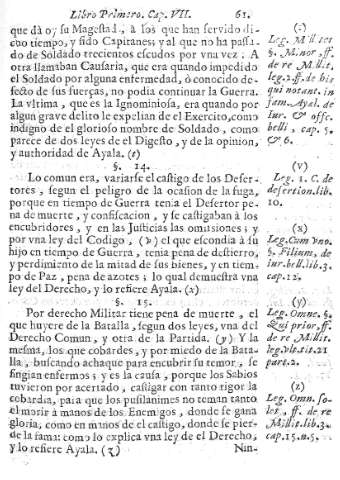 Libro Primero. Cap. VII. 61.
que dà oy su Magestad, à los que han servido dicho
tiempo, y sido Capitanes; y al que no ha passado
de Soldado trecientos escudos por vna vez: A
otra llamaban Causaria, que era quando impedido
el Soldado por alguna enfermedad, ò conocido defecto
de sus fuerças, no podia continuar la Guerra.
La vltima, que es la Ignominiosa, era quando por
algun grave delito le expelian de el Exercito, como
indigno de el glorioso nombre de Soldado, como
parece de dos leyes de el Digesto, y de la opinion,
y authoridad de Ayala. (t)
§. 14.
Lo comun era, variarse el castigo de los Desertores,
segun el peligro de la ocasion de la fuga,
porque en tiempo de Guerra tenia el Desertor pena
de muerte, y confiscacion, y se castigaban à los
encubridores, y en las Justicias las omisiones; y
por vna ley del Codigo, (v) el que escondia à su
hijo en tiempo de Guerra, tenia pena de destierro,
y perdimiento de la mitad de sus bienes, y en tiempo
de Paz, pena de azotes; lo qual demuestra vna
ley del Derecho, y lo refiere Ayala. (x)
§. 15.
Por derecho Militar tiene pena de muerte, el
que huyere de la Batalla, segun dos leyes, vna del
Derecho Comun, y otra de la Partida. (y) Y la
mesma, los que cobardes, y por miedo de la Batalla,
buscando achaque para encubrir su temor, se
fingian enfermos; y es la causa, porque los Sabios
tuvieron por acertado, castigar con tanto rigor la
cobardia, para que los pusilanimes no teman tanto
el morir à manos de los Enemigos, donde se gana
gloria, como en manos de el castigo, donde se pierde
la fama: como lo explica vna ley de el Derecho,
y lo refiere Ayala. (z) Nin-
Leg. Milites
§. Minor, ff.
de re Milit.
leg. 2. ff. de his
qui notant. in
fam. Ayal. de
Iur. & offic.
belli, cap. 5.
& 6.
(v)
Leg. 1. C. de
desertion. lib.
10.
(x)
Leg. Cum vno
§. Filium, de
iur. bell. lib. 3.
cap. 12.
(y)
Leg. Omne. §.
Qui prior, ff.
de re Milit.
leg. vlt. tit. 21
part. 2.
(z)
Leg. Omn. so-
let, ff. de re
Milit. lib. 3.
cap. 15. n. 5.